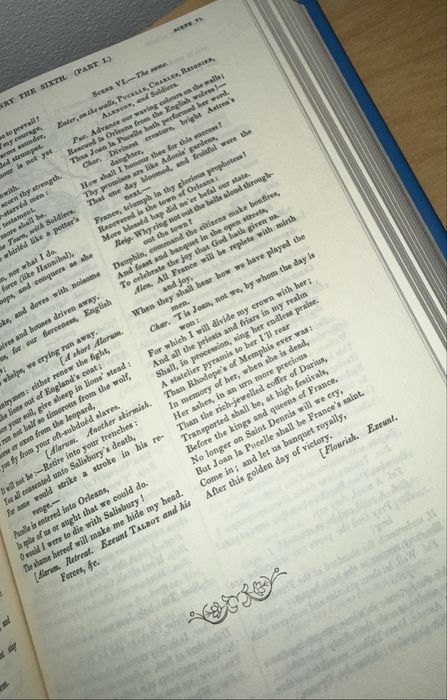 RY THE SIXTH. (PART I.)
SCENE VI.
to prevail?
f my courage,
arms asunder,
ded strumpet.
our is not yet
with
scorn thy strength.
-starved men:
testament:
ore shall be.
the Town with Soldiers.
whirled like a potter's
, nor what I do.
force (like Hannibal),
oops, and conquers as she
oke, and doves with noisome
ives and houses driven away.
s, for our fierceness, English
whelps, we crying run away.
[A short Alarum.
trymen: either renew the fight,
the lions out of England's coat;
your soil, give sheep in lions' stead:
run not half so timorous from the wolf,
or oxen from the leopard,
you fly from your oft-subdued slaves.
[Alarum. Another skirmish.
It will not be:—Retire into your trenches:
You all consented unto Salisbury's death,
For none would strike a stroke in his re-
venge.—
Pucelle is entered into Orleans,
In spite of us or aught that we could do.
O would I were to die with Salisbury!
The shame hereof will make me hide my head.
[Alarum. Retreat. Exeunt TALBOT and his
Forces, &c.
SCENE VI.—The same.
Enter, on the walls, PUCELLE, CHARLES, REIGNIER,
ALENCON, and Soldiers.
Puc. Advance our waving colours on the walls;
Rescued is Orleans from the English wolves:—
Thus Joan la Pucelle hath performed her word.
Char. Divinest creature, bright Astræa's
daughter,
How shall I honour thee for this success?
Thy promises are like Adonis' gardens,
That one day bloomed, and fruitful were the
next.—
France, triumph in thy glorious prophetess!
Recovered is the town of Orleans:
More blesséd hap did ne'er befal our state.
Reig. Why ring not out the bells aloud through-
out the town?
Dauphin, command the citizens make bonfires,
And feast and banquet in the open streets,
To celebrate the joy that God hath given us.
Alen. All France will be replete with mirth
and joy,
When they shall hear how we have played the
men.
Char. 'T is Joan, not we, by whom the day is
won:
For which I will divide my crown with her:
And all the priests and friars in my realm
Shall, in procession, sing her endless praise.
A statelier pyramis to her I'll rear
Than Rhodope's of Memphis ever was:
In memory of her, when she is dead,
Her ashes, in an urn more precious
Than the rich-jewelled coffer of Darius,
Transported shall be, at high festivals,
Before the kings and queens of France.
No longer on Saint Dennis will we cry,
But Joan la Pucelle shall be France's saint.
Come in; and let us banquet royally,
After this golden day of victory.
[Flourish. Exeunt.